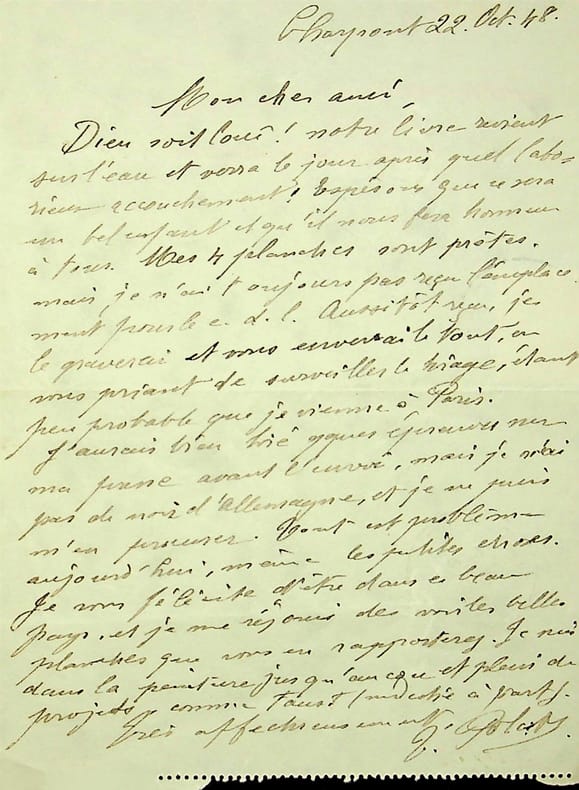 Charpont 22. Oct. 48.
Mon cher ami,
Dieu soit loué! notre livre revient
sur l'eau et verra le jour après quel labo-
rieux accouchement! Espérons que ce sera
un bel enfant et qu'il nous fera honneur
à tous. Mes 4 planches sont prêtes.
mais je n'ai toujours pas reçu l'emplace-
ment pour le c. d. l. Aussitôt reçu, je
le graverai et vous enverrai le tout, en
vous priant de surveiller le tirage, étant
peu probable que je vienne à Paris.
J'aurais bien tiré qques épreuves sur
ma presse avant l'envoi, mais je n'ai
pas de noir d'Allemagne, et je ne puis
m'en procurer. Tout est problème
aujourd'hui, même les petites choses.
Je vous félicite d'être dans ce beau
pays. et je me réjouis des belles
planches que vous en rapporterez. Je suis
dans la peinture jusqu'au cou et plein de
projets, comme Faust (modestie à part).
Très affectueusement